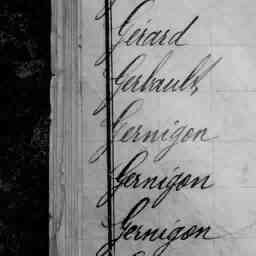 Gérard
Gerbault
Gernigon
Gernigon
Gernigon